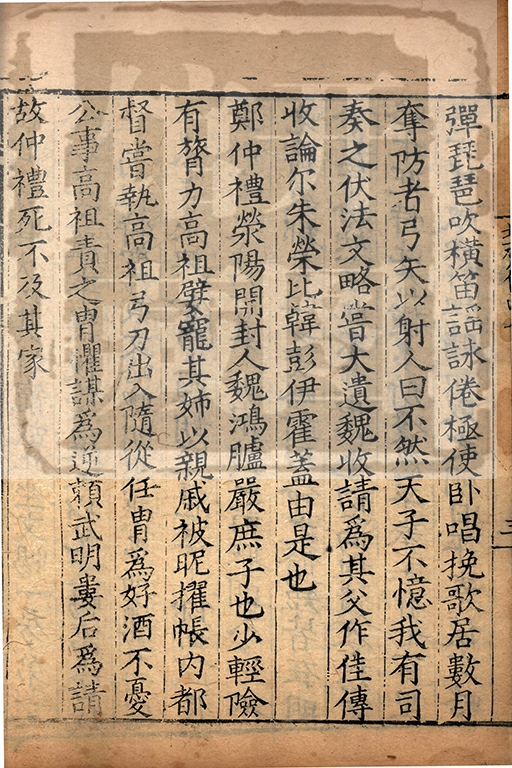 彈琵琶吹橫笛謡詠倦極使卧唱挽歌居數月
奪防者弓矢以射人曰不然天子不憶我有司
奏之伏法文略嘗大遺魏收請爲其父作佳傳
收論尔朱榮比韓彭伊霍蓋由是也
鄭仲禮滎陽開封人魏鴻臚嚴庶子也少輕險
有膂力高祖嬖寵其姉以親戚被昵擢帳内都
督嘗執高祖弓刀出入隨從任胄爲好酒不憂
公事高祖責之胄懼謀爲逆賴武明婁后爲請
故仲禮死不及其家